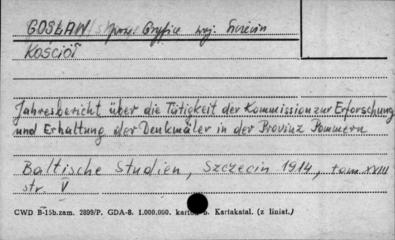 GOSŁAW pow. Gryfice woj. Szczecin
KOŚCIÓŁ
Jahresbericht über die Tätigkeit der Kommission zur Erforschung
und Erhaltung der Denkmäler in der Provinz Pommern
Baltische Studien, Szczecin 1914, tom XVIII
str. V
CWD B-15b. zam. 2899/P. GDA-8. 1.000.000. kartek b. Kartakatal. (z liniat.)